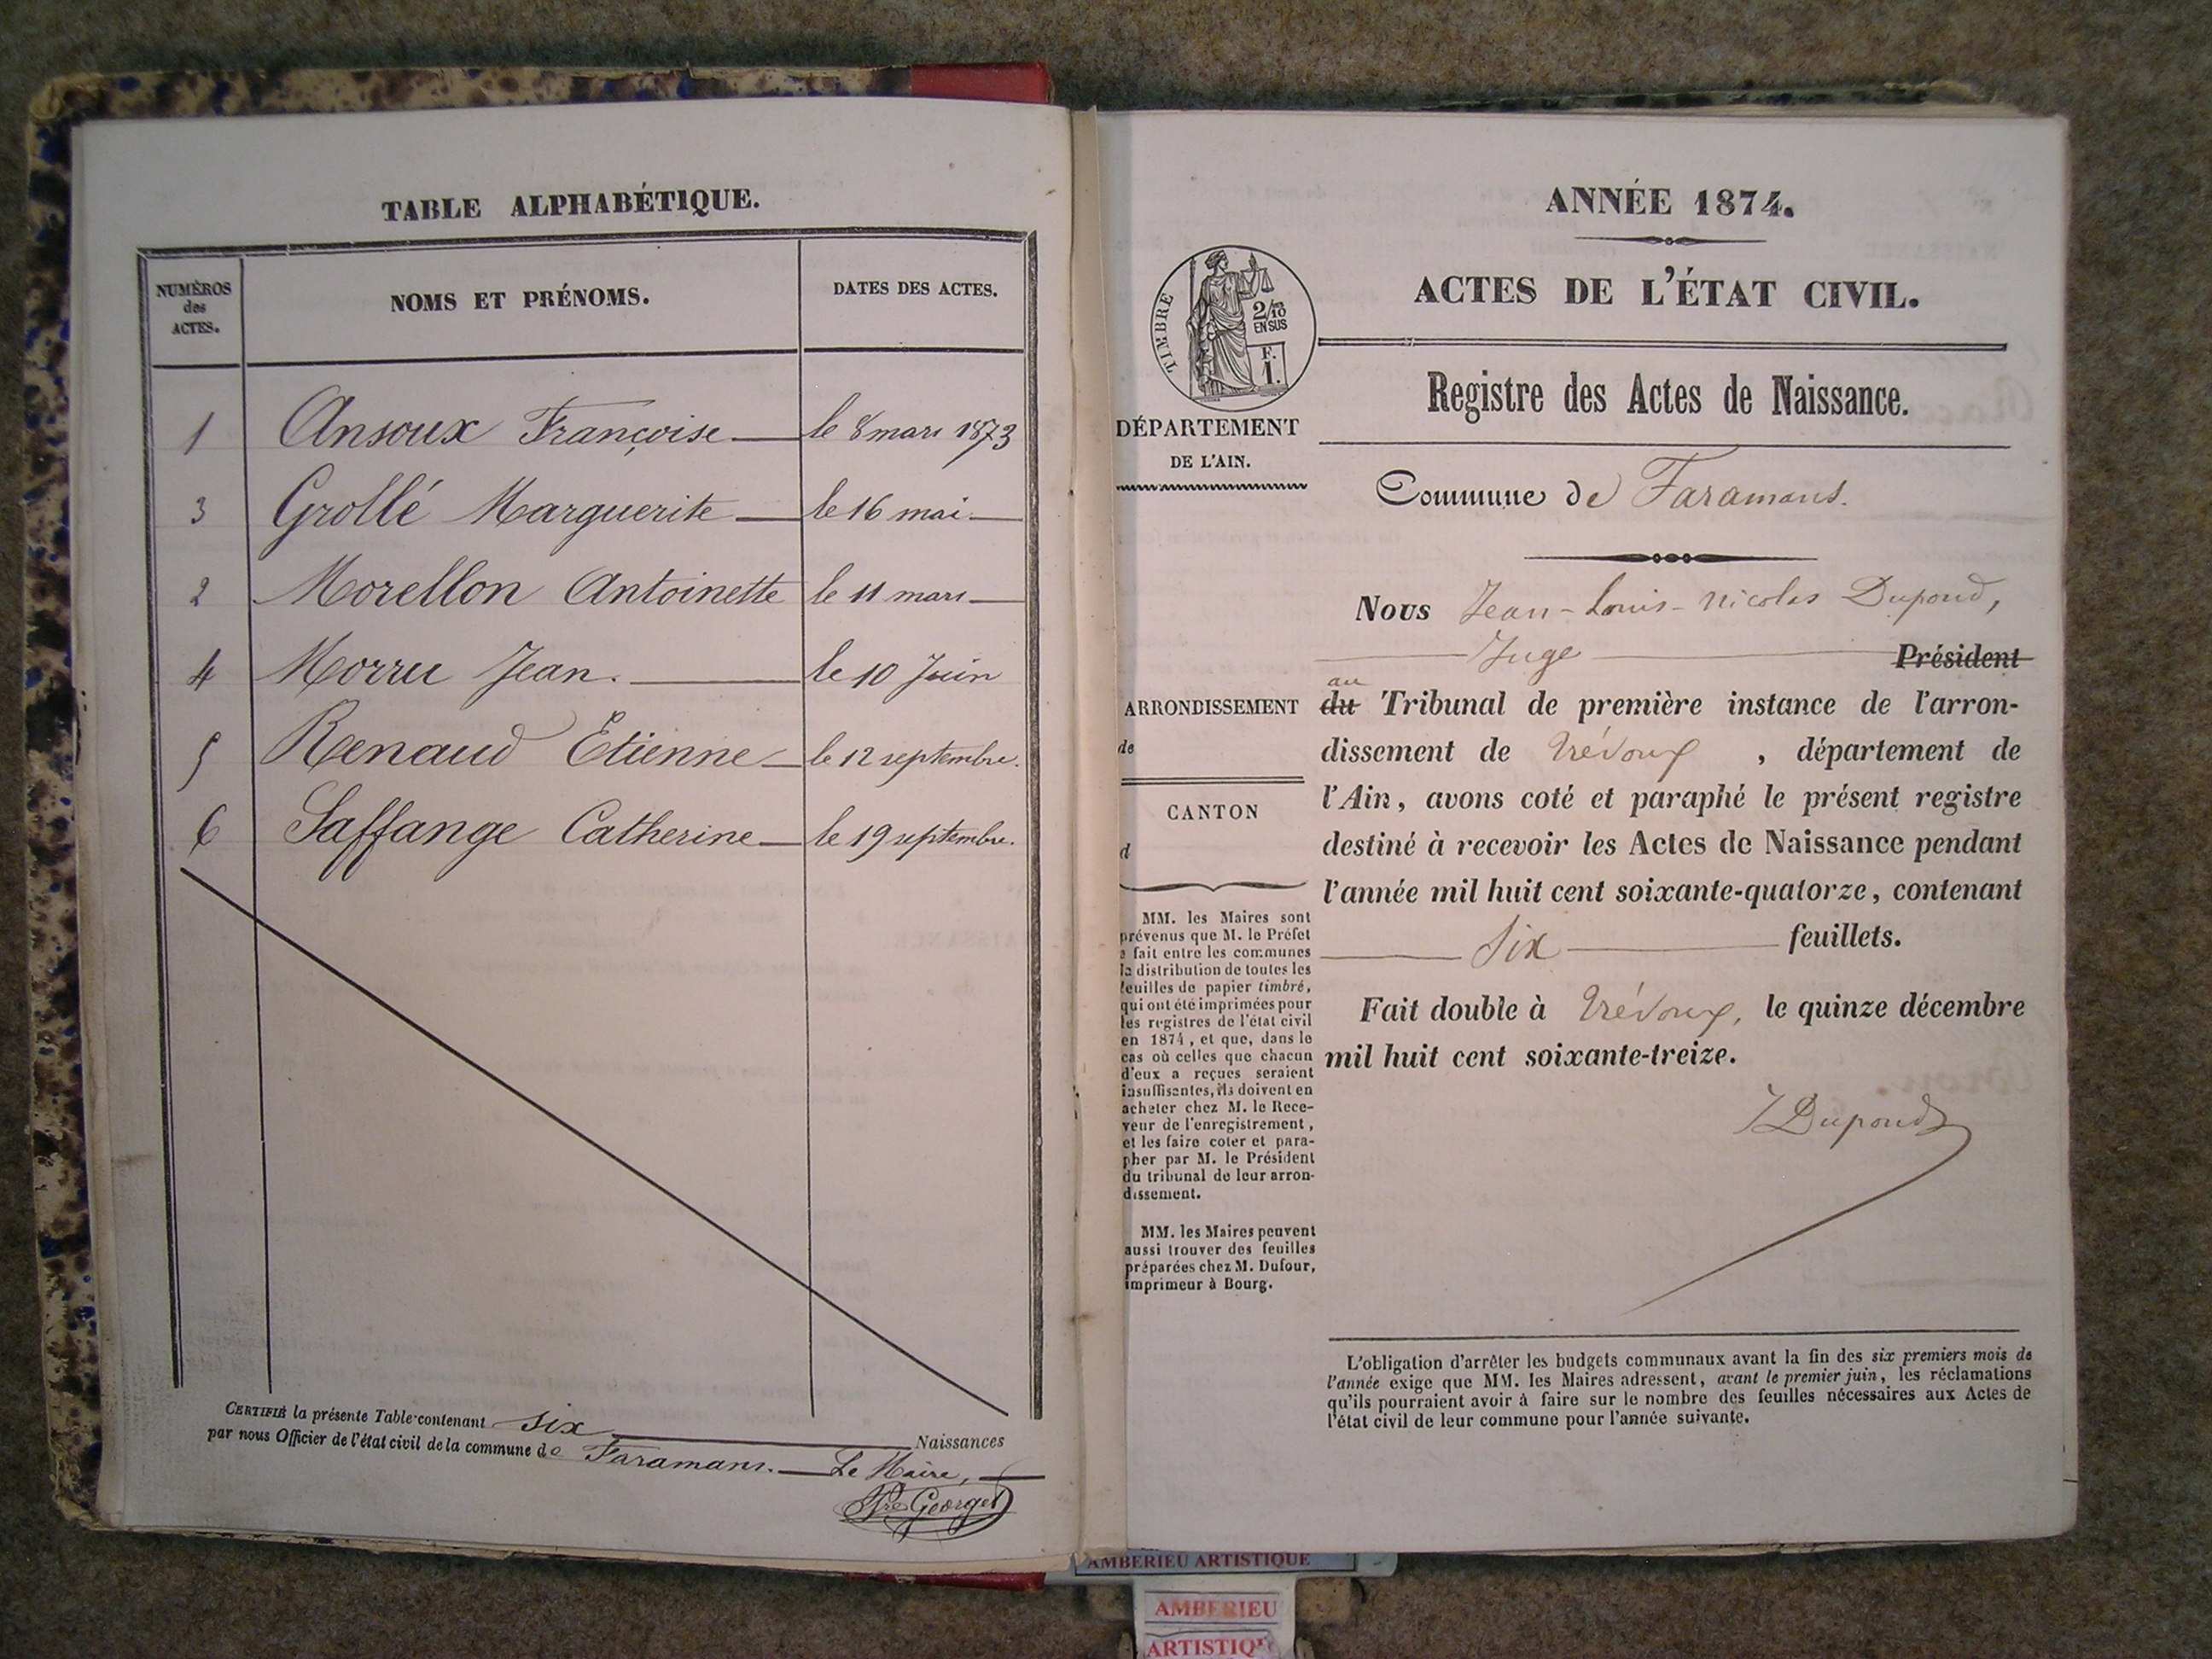 TABLE ALPHABÉTIQUE.
NUMÉROS
des
ACTES.
NOMS ET PRÉNOMS.
DATES DES ACTES.
1 Ansoux Françoise le 8 mars 1873
3 Grollé Marguerite le 16 mai
2 Morellon Antoinette le 11 mars
4 Morru Jean. le 10 Juin
5 Renaud Etienne le 12 septembre.
6 Saffange Catherine le 19 septembre.
CERTIFIÉ la présente Table contenant six Naissances
par nous Officier de l'état civil de la commune de Faramans. Le Maire,
Georges
ANNÉE 1874.
ACTES DE L'ÉTAT CIVIL.
Registre des Actes de Naissance.
Commune de Faramans.
Nous Jean-Louis-Nicolas Dupond,
Juge Président
au
du Tribunal de première instance de l'arron-
dissement de Trévoux, département de
l'Ain, avons coté et paraphé le présent registre
destiné à recevoir les Actes de Naissance pendant
l'année mil huit cent soixante-quatorze, contenant
six feuillets.
Fait double à Trévoux, le quinze décembre
mil huit cent soixante-treize.
JDupond
L'obligation d'arrêter les budgets communaux avant la fin des six premiers mois de
l'année exige que MM. les Maires adressent, avant le premier juin, les réclamations
qu'ils pourraient avoir à faire sur le nombre des feuilles nécessaires aux Actes de
l'état civil de leur commune pour l'année suivante.
TIMBRE
2/10
EN SUS
F.
1.
DÉPARTEMENT
DE L'AIN.
ARRONDISSEMENT
de
CANTON
d
MM. les Maires sont
prévenus que M. le Préfet
a fait entre les communes
la distribution de toutes les
feuilles de papier timbré,
qui ont été imprimées pour
les registres de l'état civil
en 1874, et que, dans le
cas où celles que chacun
d'eux a reçues seraient
insuffisantes, ils doivent en
acheter chez M. le Rece-
veur de l'enregistrement,
et les faire coter et para-
pher par M. le Président
du tribunal de leur arron-
dissement.
MM. les Maires peuvent
aussi trouver des feuilles
préparées chez M. Dufour,
imprimeur à Bourg.
AMBERIEU ARTISTIQUE
AMBERIEU
ARTISTIQUE